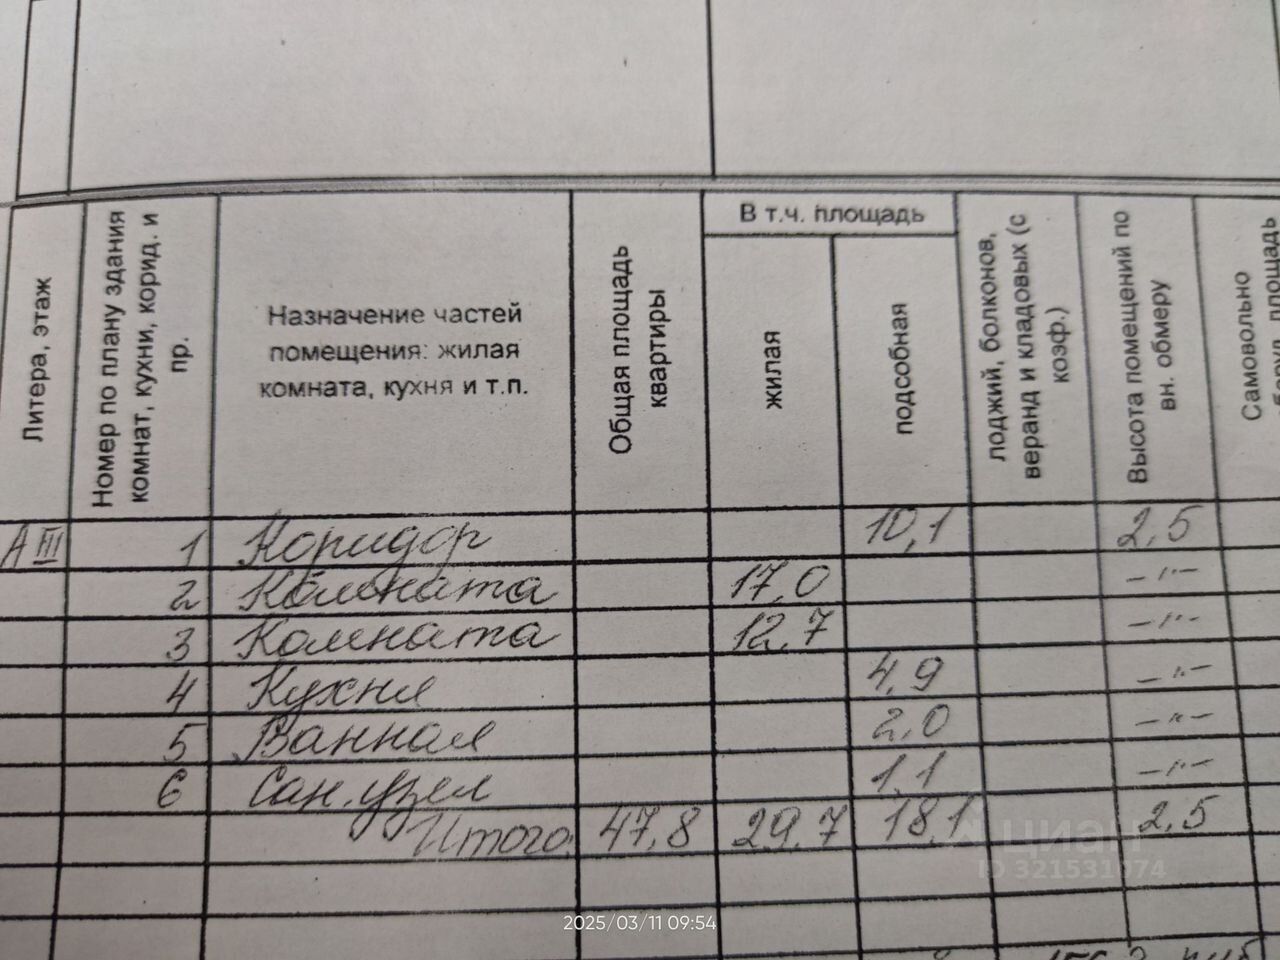 Литера, этаж
Номер по плану здания
комнат, кухни, корид. и
пр.
Назначение частей
помещения: жилая
комната, кухня и т.п.
Общая площадь
квартиры
В т.ч. площадь
жилая
подсобная
лоджий, болконов,
веранд и кладовых (с
коэф.)
Высота помещений по
вн. обмеру
Самовольно
площадь
А III 1 Коридор 10,1 2,5
2 Комната 17,0 –"–
3 Комната 12,7 –"–
4 Кухня 4,9 –"–
5 Ванная 2,0 –"–
6 Сан. узел 1,1 –"–
Итого: 47,8 29,7 18,1 2,5
циан
ID 321531074
2025/03/11 09:54